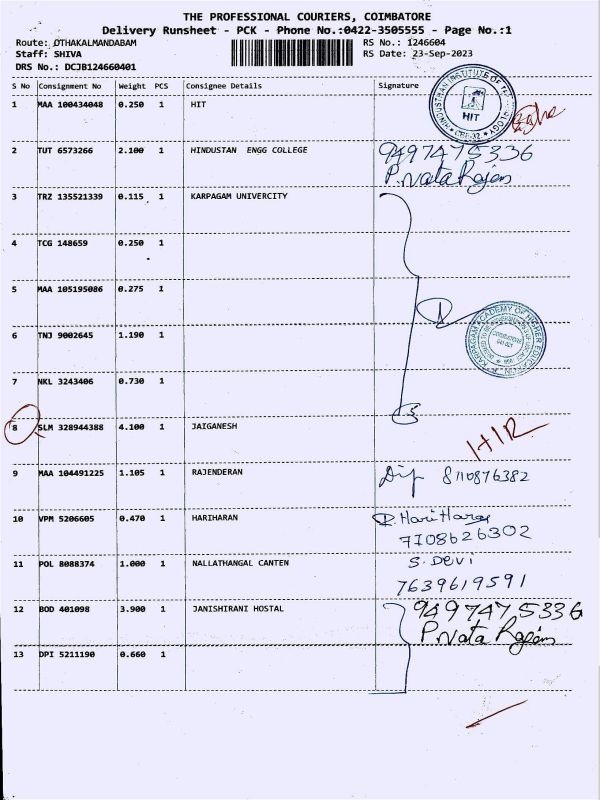 THE PROFESSIONAL COURIERS, COIMBATORE
Delivery Runsheet - PCK - Phone No.:0422-3505555 - Page No.:1
Route: OTHAKALMANDABAM
RS No.: 1246604
Staff: SHIVA
RS Date: 23-Sep-2023
DRS No.: DCJB124660401
S No Consignment No Weight PCS Consignee Details Signature
1 MAA 100434048 0.250 1 HIT
HIT
2 TUT 6573266 2.100 1 HINDUSTAN ENGG COLLEGE 9497475336
3 TRZ 135521339 0.115 1 KARPAGAM UNIVERCITY
4 TCG 148659 0.250 1
5 MAA 105195086 0.275 1
KARPAGAM ACADEMY OF HIGHER EDUCATION
6 TNJ 9002645 1.190 1
7 NKL 3243406 0.730 1
8 SLM 328944388 4.100 1 JAIGANESH
9 MAA 104491225 1.105 1 RAJENDERAN 8110876382
10 VPM 5206605 0.470 1 HARIHARAN R. Hari Haran
7708626302
11 POL 8088374 1.000 1 NALLATHANGAL CANTEN S. Devi
7639619591
12 BOD 401098 3.900 1 JANISHIRANI HOSTAL 9497475336
13 DPI 5211190 0.660 1